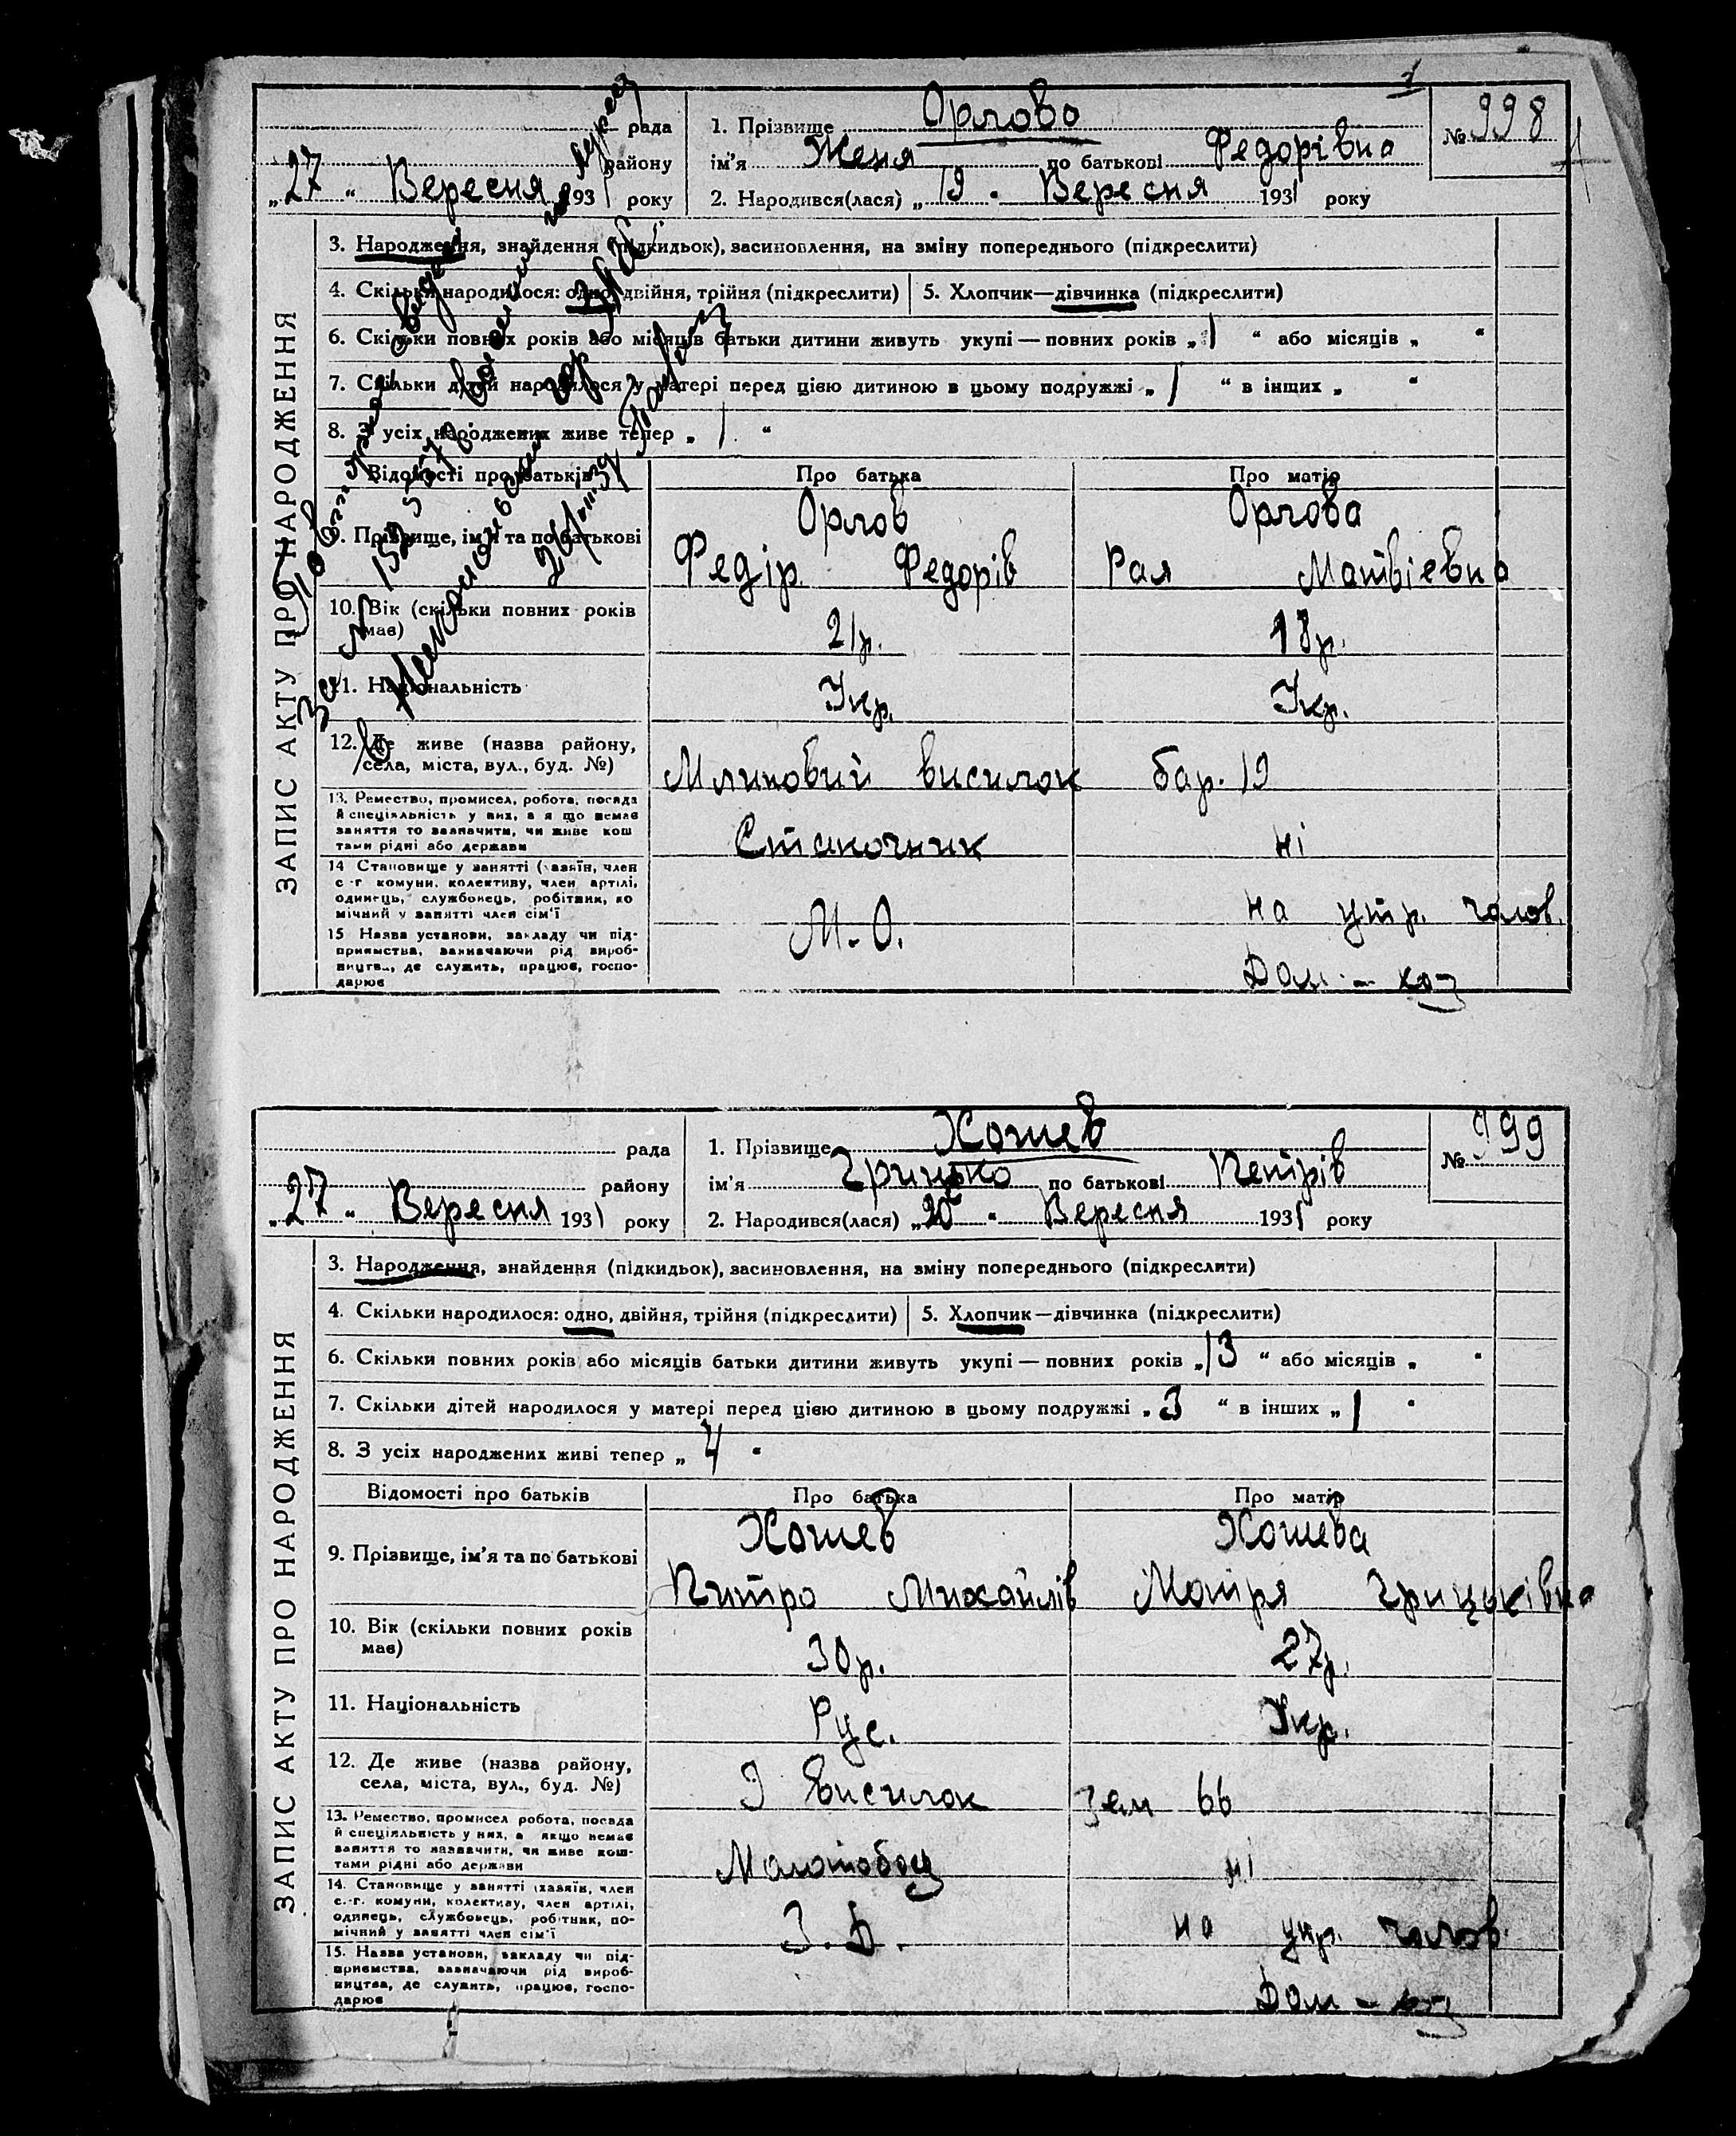 рада
району
„27“ Вересня 1931 року
1. Прізвище Орлова
ім'я Женя по батькові Федорівна
2. Народився(лася) „19“ Вересня 1931 року
№ 998
ЗАПИС АКТУ ПРО НАРОДЖЕННЯ
3. Народження, знайдення (підкидьок), засиновлення, на зміну попереднього (підкреслити)
4. Скільки народилося: одно, двійня, трійня (підкреслити)
5. Хлопчик—дівчинка (підкреслити)
6. Скільки повних років або місяців батьки дитини живуть укупі — повних років „1“ або місяців „ “
7. Скільки дітей народилося у матері перед цією дитиною в цьому подружжі „1“ в інших „ “
8. З усіх народжених живе тепер „1“
Відомості про батьків
Про батька
Про матір
9. Прізвище, ім'я та по батькові
Орлов
Федір Федорів
Орлова
Рая Матвієвна
10. Вік (скільки повних років має)
21р.
18р.
11. Національність
Укр.
Укр.
12. Де живе (назва району,
села, міста, вул., буд. №)
Млиновий висилок бар. 19
13. Ремество, промисел, робота, посада
й спеціяльність у них, а я що немає
заняття то зазначити, чи живе кош
тами рідні або держави
Станочник
ні
14 Становище у занятті (хазяїн, член
с.-г комуни, колективу, член артілі,
одинець, службовець, робітник, по
мічний у занятті член сім'ї
М.О.
на утр. чолов.
15 Назва установи, закладу чи під-
приємства, зазначаючи рід вироб-
ництва, де служить, працює, госпо-
дарює
Дом-хоз
рада
району
„27“ Вересня 1931 року
1. Прізвище Хошев
ім'я Гринько по батькові Петрів
2. Народився(лася) Вересня 1931 року
№ 999
ЗАПИС АКТУ ПРО НАРОДЖЕННЯ
3. Народження, знайдення (підкидьок), засиновлення, на зміну попереднього (підкреслити)
4. Скільки народилося: одно, двійня, трійня (підкреслити)
5. Хлопчик—дівчинка (підкреслити)
6. Скільки повних років або місяців батьки дитини живуть укупі — повних років „13“ або місяців „ “
7. Скільки дітей народилося у матері перед цією дитиною в цьому подружжі „3“ в інших „1“
8. З усіх народжених живі тепер „4“
Відомості про батьків
Про батька
Про матір
9. Прізвище, ім'я та по батькові
Хошев
Питро Михайлів
Хошева
Мотря Грицьківна
10. Вік (скільки повних років
має)
30р.
27р.
11. Національність
Рус.
Укр.
12. Де живе (назва району,
села, міста, вул., буд. №)
Висилок зем 66
13. Ремество, промисел робота, посада
й спеціяльність у них, а якщо немає
заняття то зазначити, чи живе кош-
тами рідні або держави
Молотобоц
ні
14. Становище у занятті (хазяїн, член
с.-г. комуни, колективу, член артілі,
одинець, службовець, робітник, по-
мічний у занятті член сім'ї
на утр. чолов.
15. Назва установи, закладу чи під-
приємства, зазначаючи рід вироб-
ництва, де служить, працює, госпо-
дарює
Дом-хоз